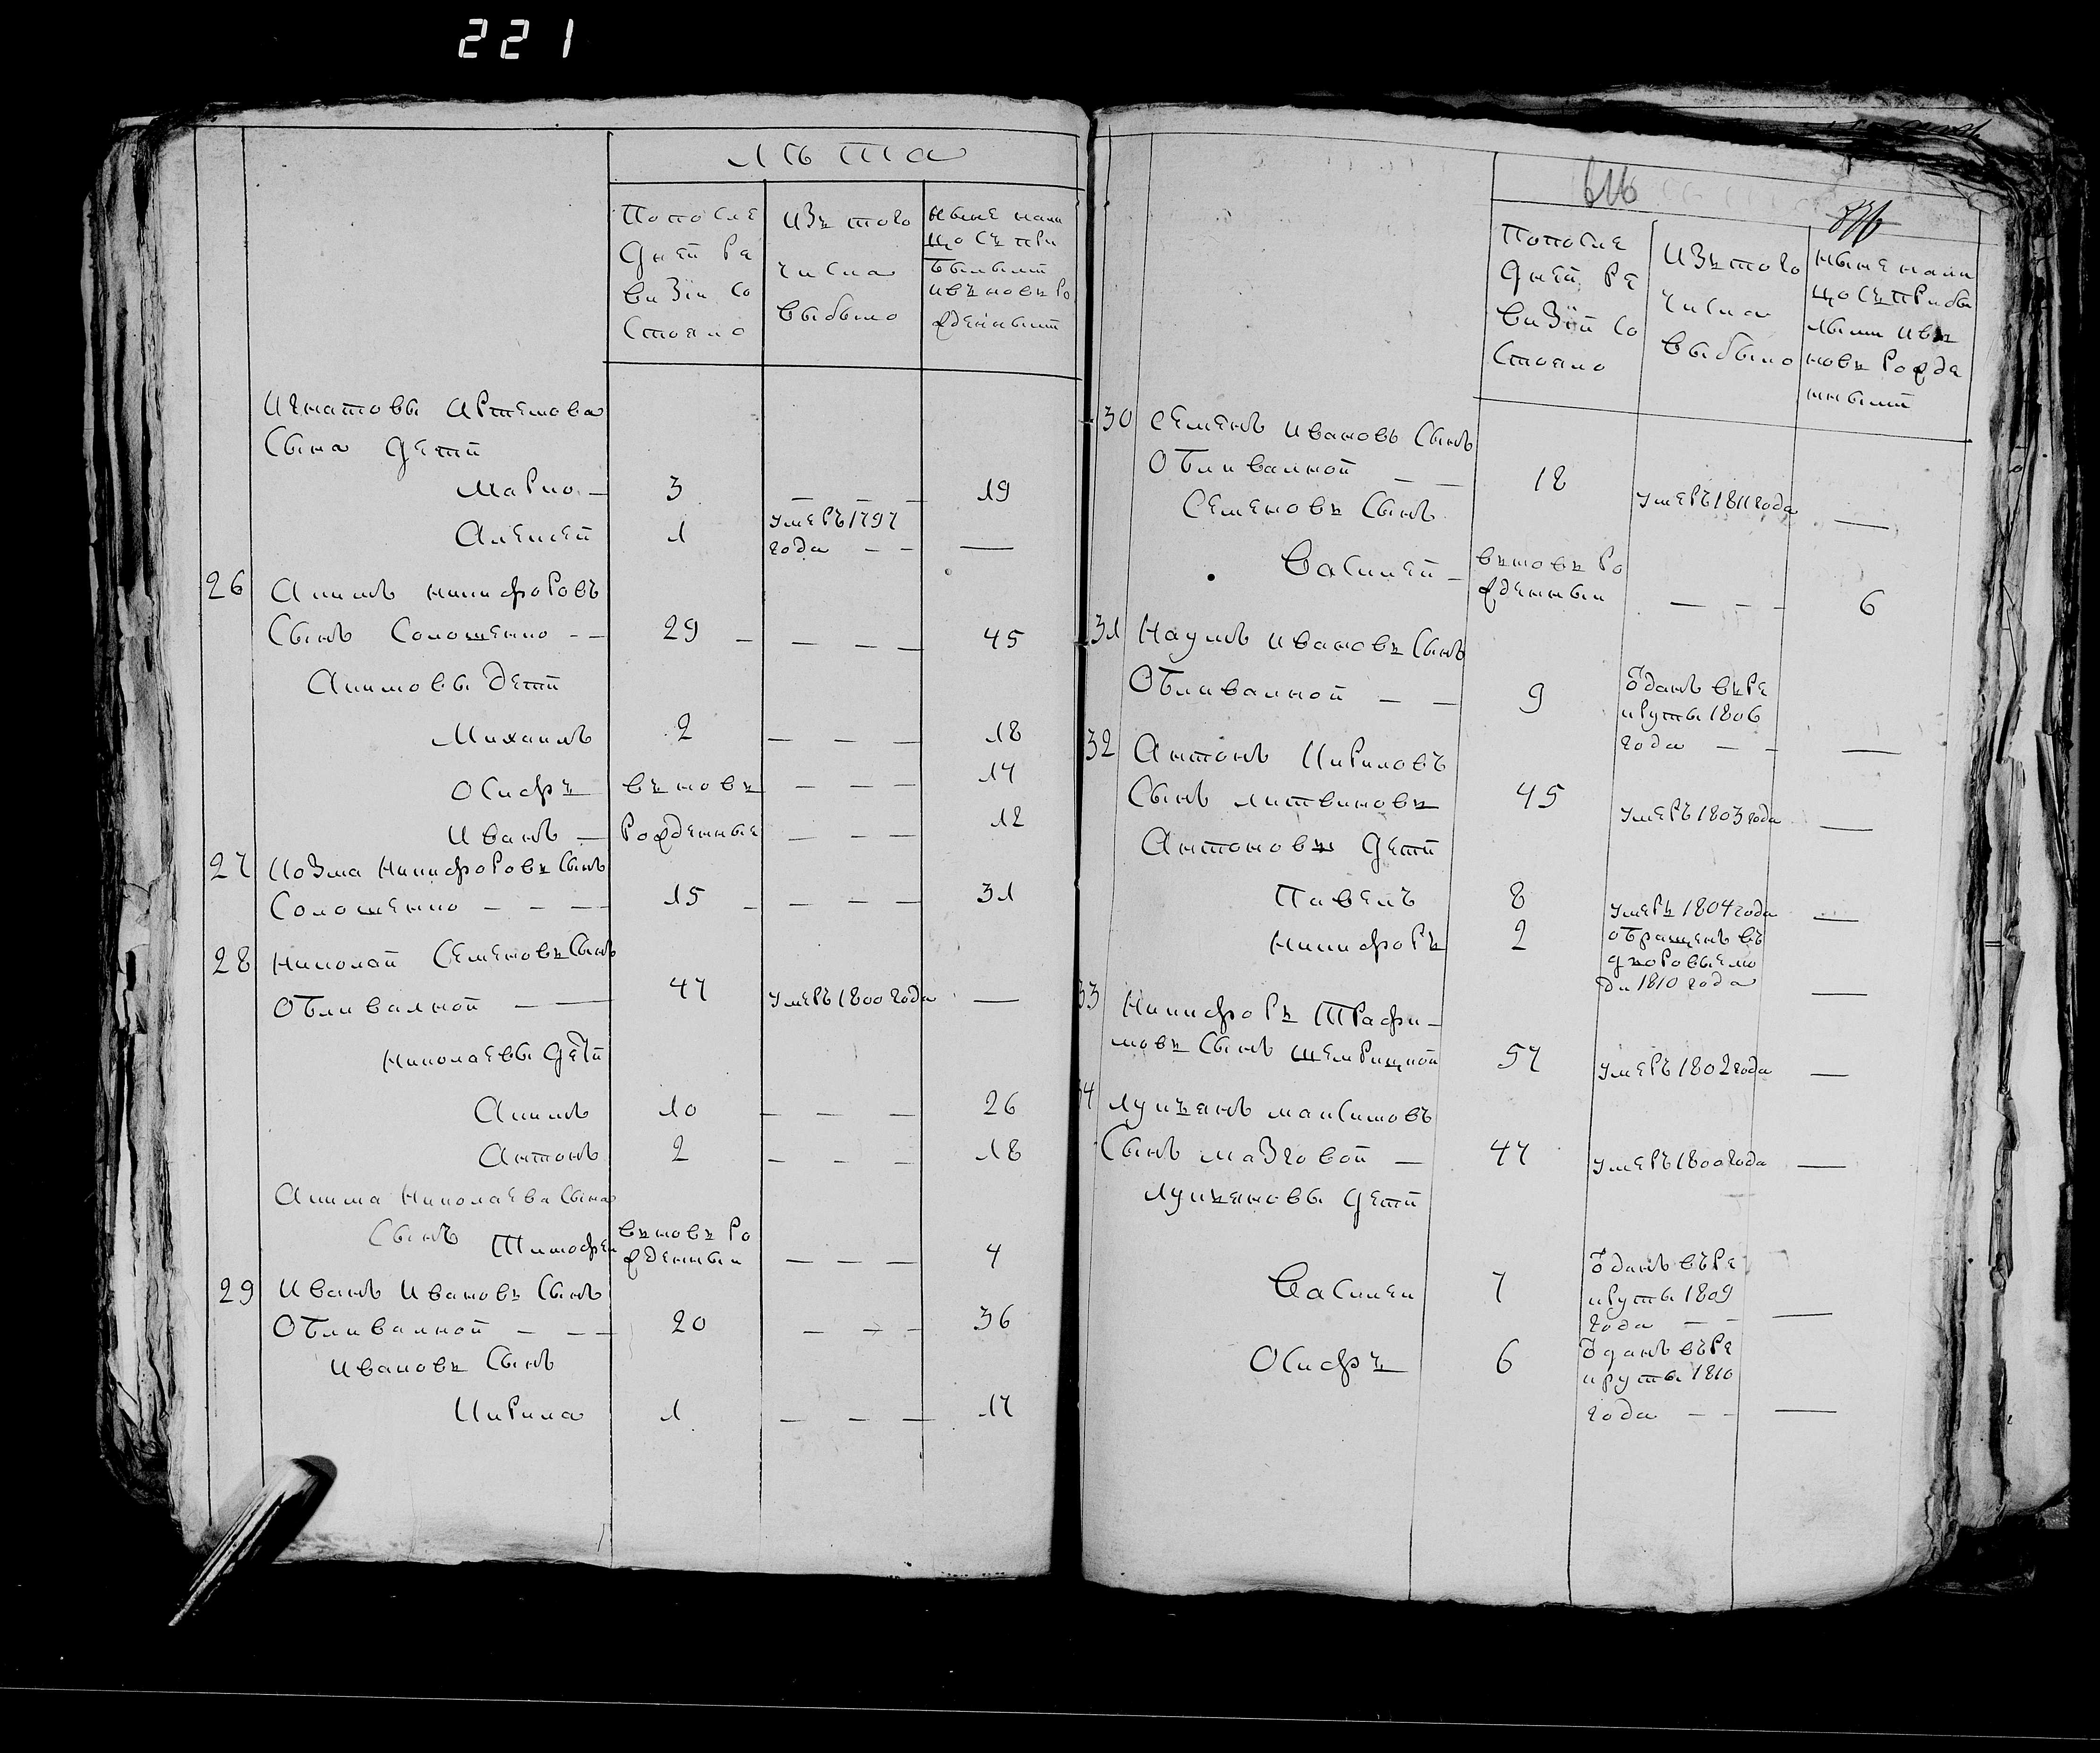 221
лѣта
Попосле
дней ре
визiи со
стояло
изъ того
числа
выбыло
ныне нали
цо съ при
былыми
ивъновь ро
жденными
Игнатовы Артемова
сына дети
Марко — 3 — — — 19
Алексей 1 умеръ 1797
года — — —
26 Акимъ никифоровъ
сынъ Солошенко — — 29 — — — — 45
Акимовы дети
Михаилъ 2 — — — 18
Осифъ въновь — — — 14
Иванъ — рожденные — — — 12
27 Козма Никифоровъ сынъ
Солошенко — — — 15 — — — — 31
28 Николай Семеновъ сынъ
Обливалной — — 47 умеръ 1800 года —
Николаевы дети
Акимъ 10 — — — 26
Антонъ 2 — — — 18
Акима Николаева сына
сынъ Тимофеи въновь ро
жденныи — — — 4
29 Иванъ Ивановъ сынъ
Обливалной — — — 20 — — — 36
Ивановъ сынъ
Кирила 1 — — — 17
616
Попосле
дней ре
визiй со
стояло
изъ того
числа
выбыло
ныне нали
цо съ прибы
лыми ивъ
новь рожде
нными
30 Семенъ Ивановъ сынъ
Обливалной — — 18 умеръ 1811 года —
Семеновъ сынъ
Василей — въновь ро
жденныи — — — 6
31 Наумъ Ивановъ сынъ
Обливалной — — 9 Отданъ въре
круты 1806
года — — —
32 Антонъ Кириловъ
сынъ литвиновъ 45 умеръ 1803 года —
Антоновы дети
Павелъ 8 умеръ 1804 года —
Никифоръ 2 обращенъ въ
дворовые лю
ди 1810 года —
33 Никифоръ Трафи-
мовъ сынъ 57 умеръ 1802 года —
34 Лукъянъ максимовъ
сынъ мазговой — 47 умеръ 1800 года —
Лукъяновы дети
Василеи 7 Отданъ въре
круты 1809
года — — —
Осифъ 6 Отданъ въре
круты 1810
года — — —